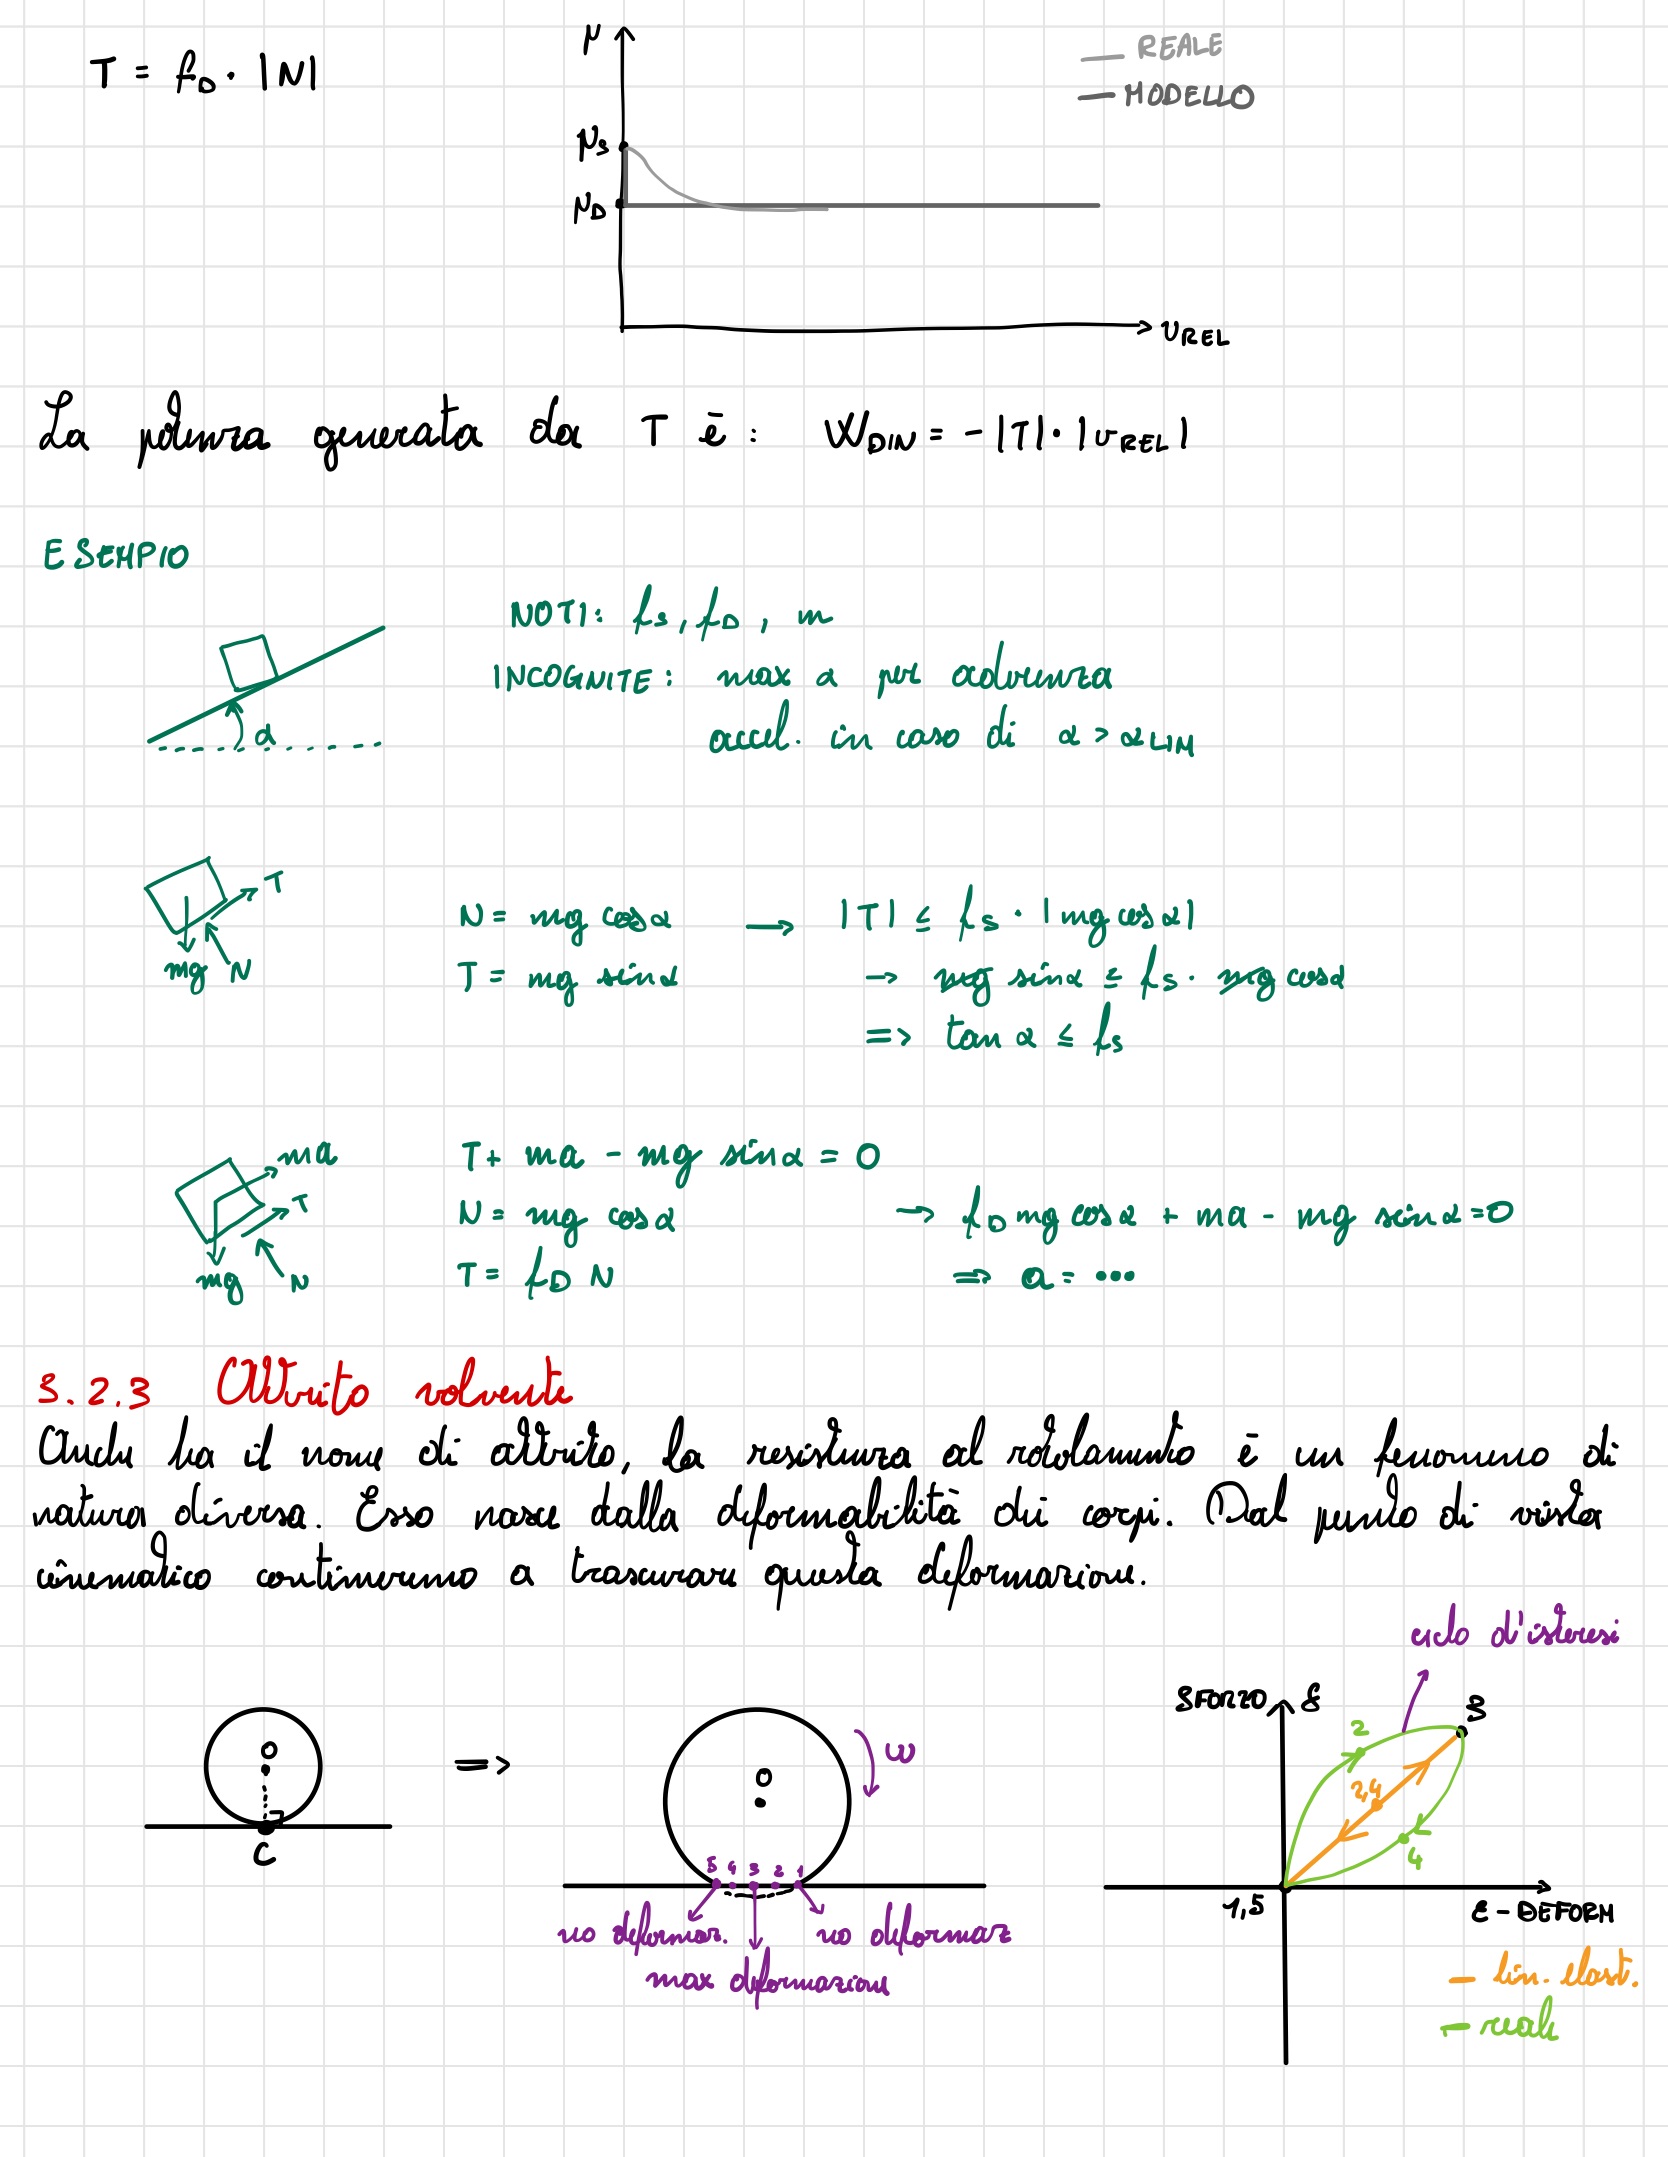 T = f_D · |N|
μ
REALE
MODELLO
μ_S
μ_D
v_REL
La potenza generata da T è: W_DIN = -|T| · |v_REL|
ESEMPIO
NOTI: f_s, f_D, m
INCOGNITE: max α per aderenza
accel. in caso di α > α_LIM
α
T
mg N
N = mg cosα → |T| ≤ f_s · |mg cosα|
T = mg sinα → mg sinα ≤ f_s · mg cosα
=> tan α ≤ f_s
ma
T
mg N
T + ma - mg sinα = 0
N = mg cosα → f_D mg cosα + ma - mg sinα = 0
T = f_D N => a = ...
3.2.3 Attrito volvente
Anche ha il nome di attrito, la resistenza al rotolamento è un fenomeno di
natura diversa. Esso nasce dalla deformabilità dei corpi. Dal punto di vista
cinematico continueremo a trascurare questa deformazione.
ciclo d'isteresi
O
C
=>
O
ω
5 4 3 2 1
no deformaz. no deformaz
max deformazione
SFORZO
3
2
2,4
4
1,5
ε - DEFORM
- lin. elast.
- reale